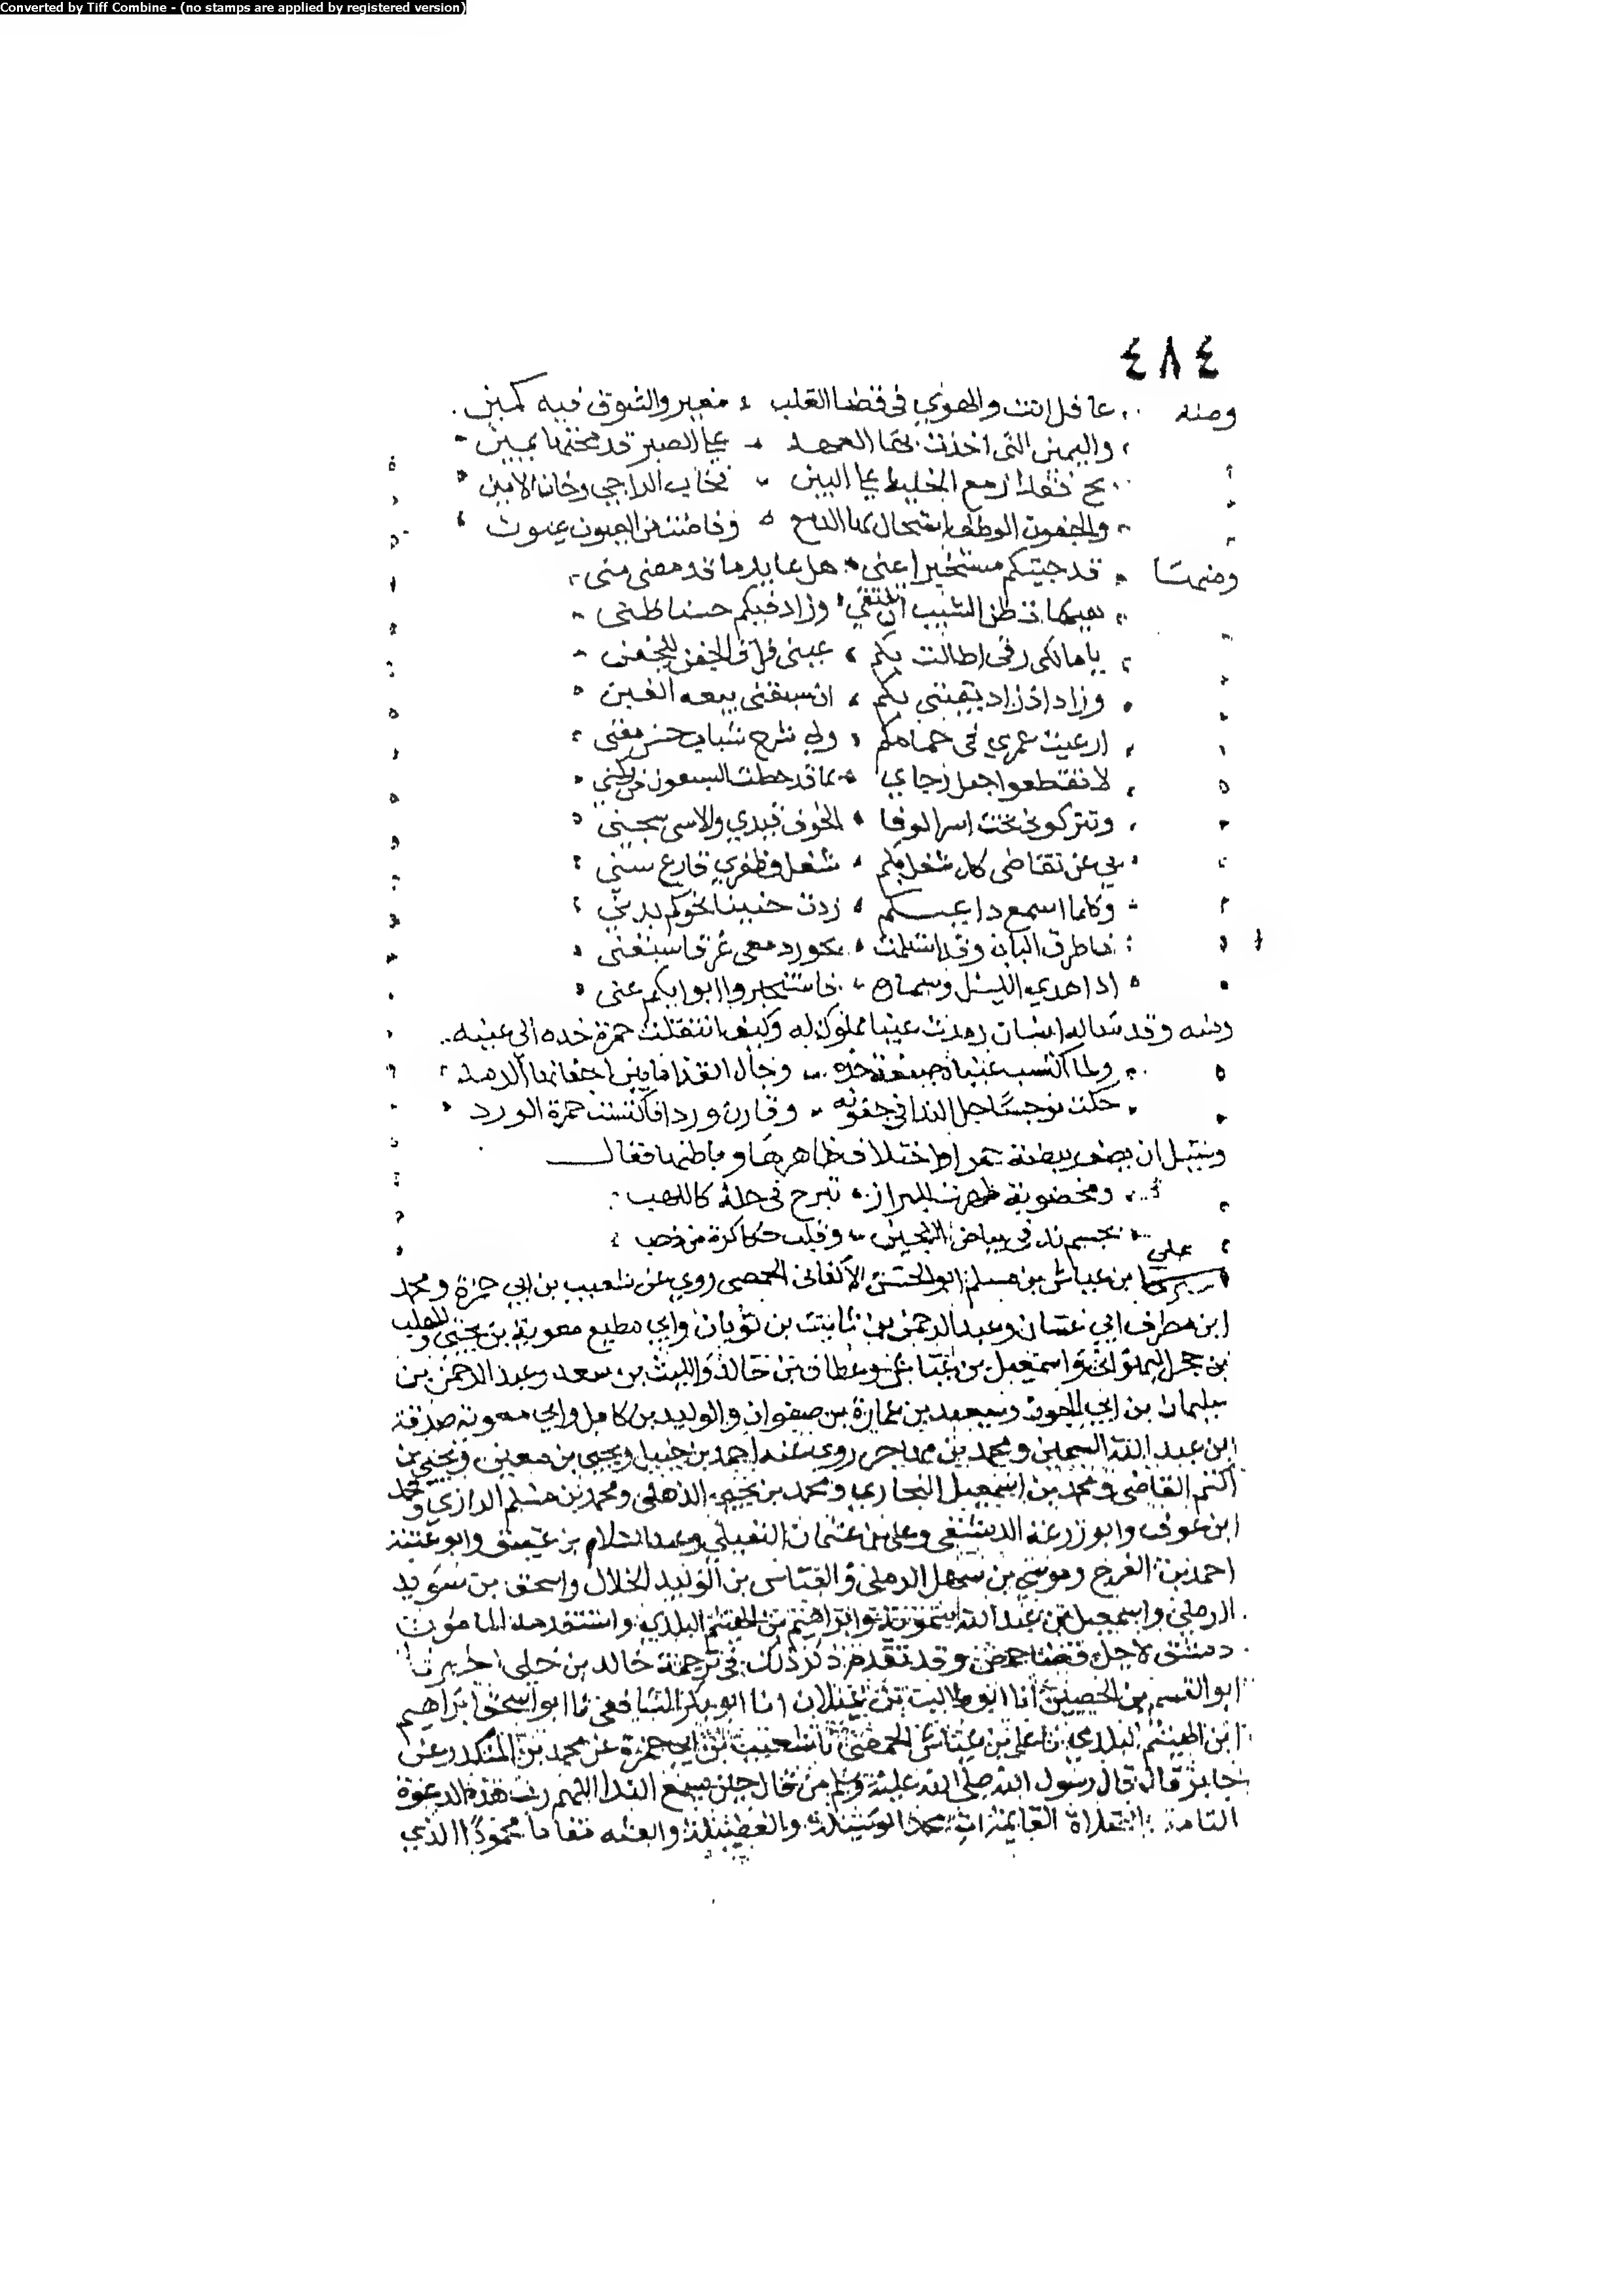 Converted by Tiff Combine - (no stamps are applied by registered version)
٤٨٤
ومنه غافل انت والهوى في فضا القلب مغير والشوق فيه كمين
واليمين التي اخذت بها العهد على الصبر قد محتها يمين
الخليط على البين فخاب الراجي وخان الامين
والجفون الدمع وفاضت من العيون عيون
ومنها قد جيتكم مستخبرا عني هل عايد ما قد مضى مني
الشيب وزاد فيكم حسنا ظني
يا مالكي رقى اطالت بكم عيني فراق الجفن للجفن
وزاد اذ زاد يقيني بكم ان سبقتني بيعه الغبن
ارعيت عمري في حماكم ولي شرخ شباب حسن
لا تقطعوا رجاي بما قد حطت السبعون من ركني
وتتركوني تحت اسر الوفا الخوف قيدي والاسى سجني
بي عن تقاضى كل شغل بكم شغل وظفري قارع سني
وكلما اسمع داعيكم زدت حنينا نحوكم
فاطرق الباب وقد
اذا هدي الليل فاستخبروا ابوابكم عني
ومنه وقد ساله انسان رمدت عينا مملوك له وكيف انتقلت حمرة خده الى عينيه
ولما اكتسب عيناه صبغة خده وجال القذا ما بين اجفانها الرمد
حكت نرجسا حل الندا في جفونه وقارن وردا فاكتست حمرة الورد
وسيل ان يصف بيضة واختلاف ظاهرها وباطنها فقال
ومخضوبة ظهرت للبراز تبرج في حلة كالذهب
بجسم ند في بياض اللجين وقلب حكا كرة من ذهب
علي
ابن عياش بن مسلم ابو الحسن الألهاني الحمصي روى عن شعيب بن ابي حمزة ومحمد
ابن مطرف ابي غسان وعبد الرحمن بن ثابت بن ثوبان وابي مطيع معوية بن يحيى والمهلب
بن حجر البهراني واسمعيل بن عياش وعطاف بن خالد والليث بن سعد وعبد الرحمن بن
سليمان بن ابي الجون وسعيد بن عمارة بن صفوان والوليد بن كامل وابي معوية صدقة
ابن عبد الله السمين ومحمد بن مهاجر روى عنه احمد بن حنبل ويحيى بن معين ويحيى بن
اكثم القاضي ومحمد بن اسمعيل البخاري ومحمد بن يحيى الذهلي ومحمد بن مسلم الرازي ومحمد
ابن عوف وابو زرعة الدمشقي وعلي بن عثمان النفيلي وعبد السلام بن عتيق وابو عتبة
احمد بن الفرج وموسى بن سهل الرملي والعباس بن الوليد الخلال واسحق بن سويد
الرملي واسمعيل بن عبد الله سمويه وابراهيم بن الهيثم البلدي واستقدمه المامون
دمشق لاجل قضا حمص وقد تقدم ذكر ذلك في ترجمة خالد بن خلي اخبرنا
ابو القسم بن الحصين انا ابو طالب بن غيلان انا ابو بكر الشافعي نا ابو اسحق ابراهيم
ابن الهيثم البلدي نا علي بن عياش الحمصي نا شعيب بن ابي حمزة عن محمد بن المنكدر عن
جابر قال قال رسول الله صلى الله عليه وسلم من قال حين يسمع الندا اللهم رب هذه الدعوة
التامة والصلاة القايمة ات محمدا الوسيلة والفضيلة وابعثه مقاما محمودا الذي